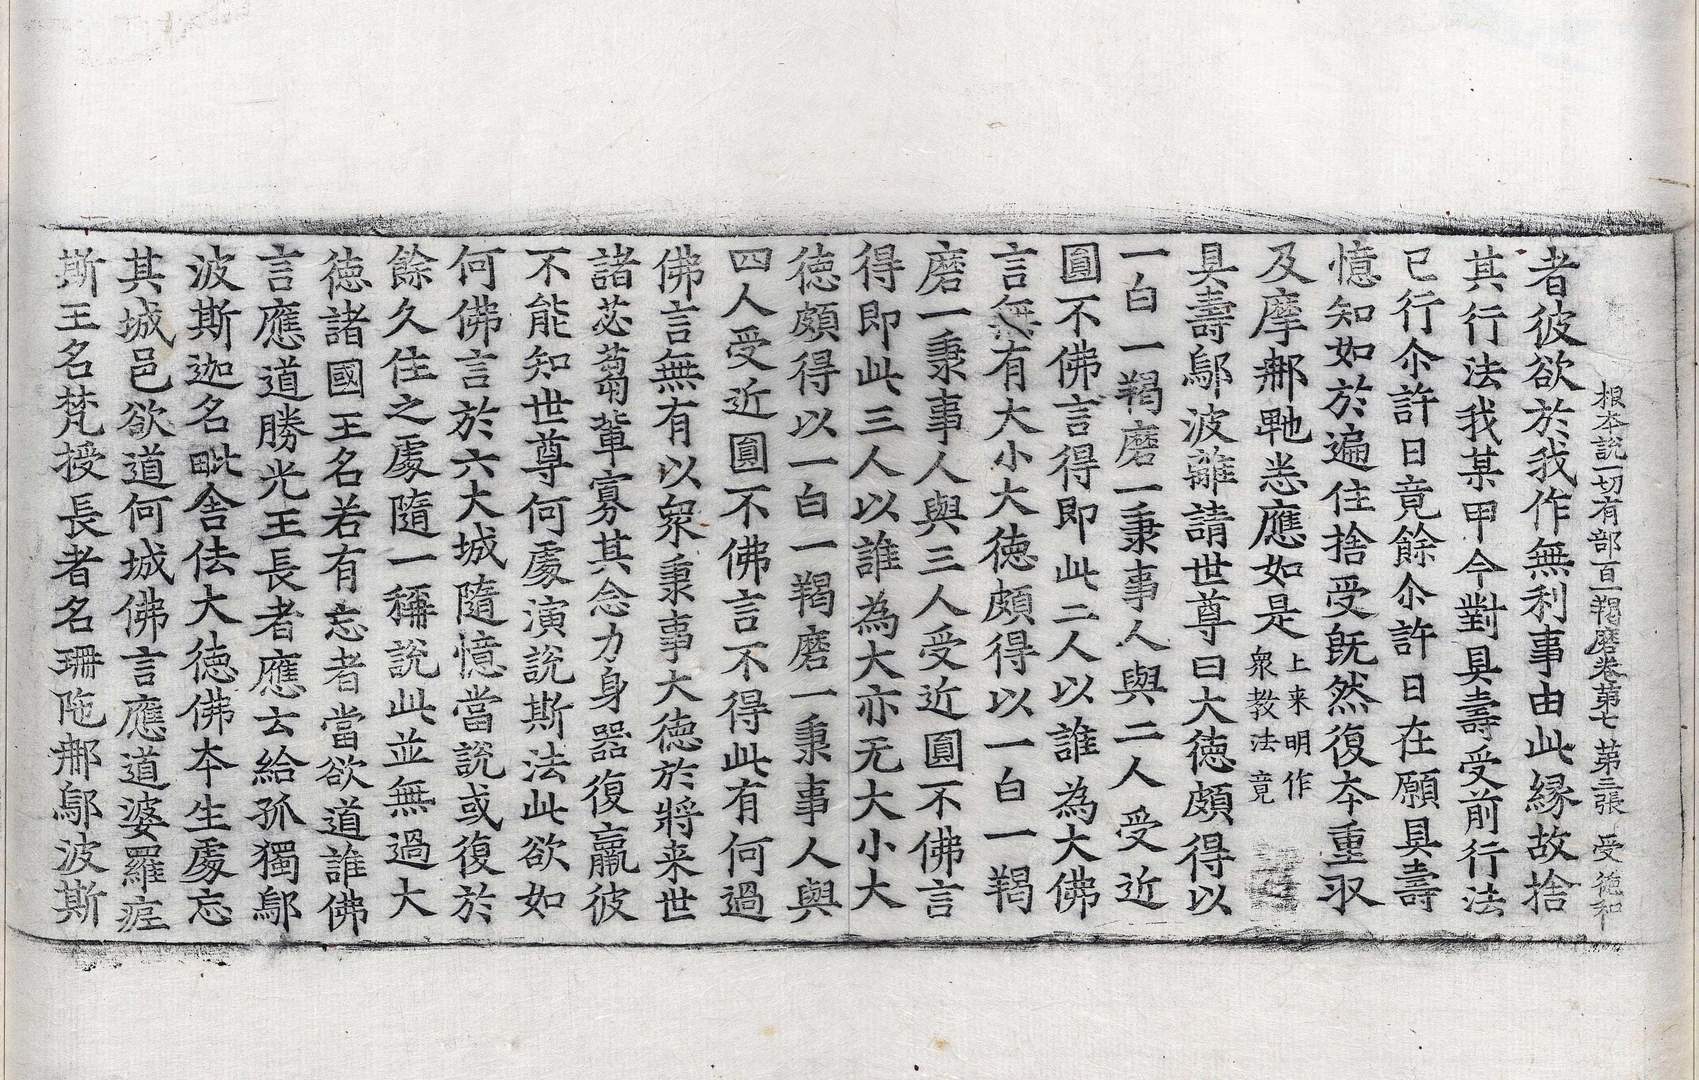 根本說一切有部百一羯磨卷第七 第三張 受 德和
者彼欲於我作無利事由此緣故捨
其行法我某甲今對具壽受前行法
已行尒許日竟餘尒許日在願具壽
憶知如於遍住捨受旣然復夲重収
及摩𨚗𠰷恙應如是上来明作衆教法竟
具壽鄔波離請世尊曰大德頗得以
一白一羯磨一秉事人與二人受近
圓不佛言得即此二人以誰為大佛
言無有大小大德頗得以一白一羯
磨一秉事人與三人受近圓不佛言
得即此三人以誰為大亦无大小大
德頗得以一白一羯磨一秉事人與
四人受近圓不佛言不得此有何過
佛言無有以衆秉事大德於將来世
諸苾蒭輩寡其念力身器復羸彼
不能知世尊何處演說斯法此欲如
何佛言於六大城隨憶當說或復於
餘久住之處隨一稱說此並無過大
德諸國王名若有忘者當欲道誰佛
言應道勝光王長者應云給孤獨鄔
波斯迦名毗舍佉大德佛夲生處忘
其城邑欲道何城佛言應道婆羅痆
斯王名梵授長者名珊陁𨚗鄔波斯